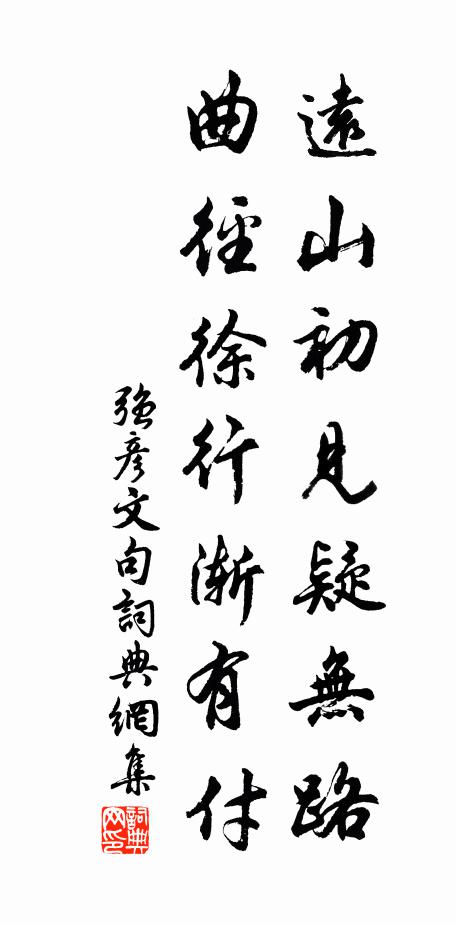 遠山初見疑無路
曲徑徐行漸有付
強彥文句詞典網集
詞典
网印